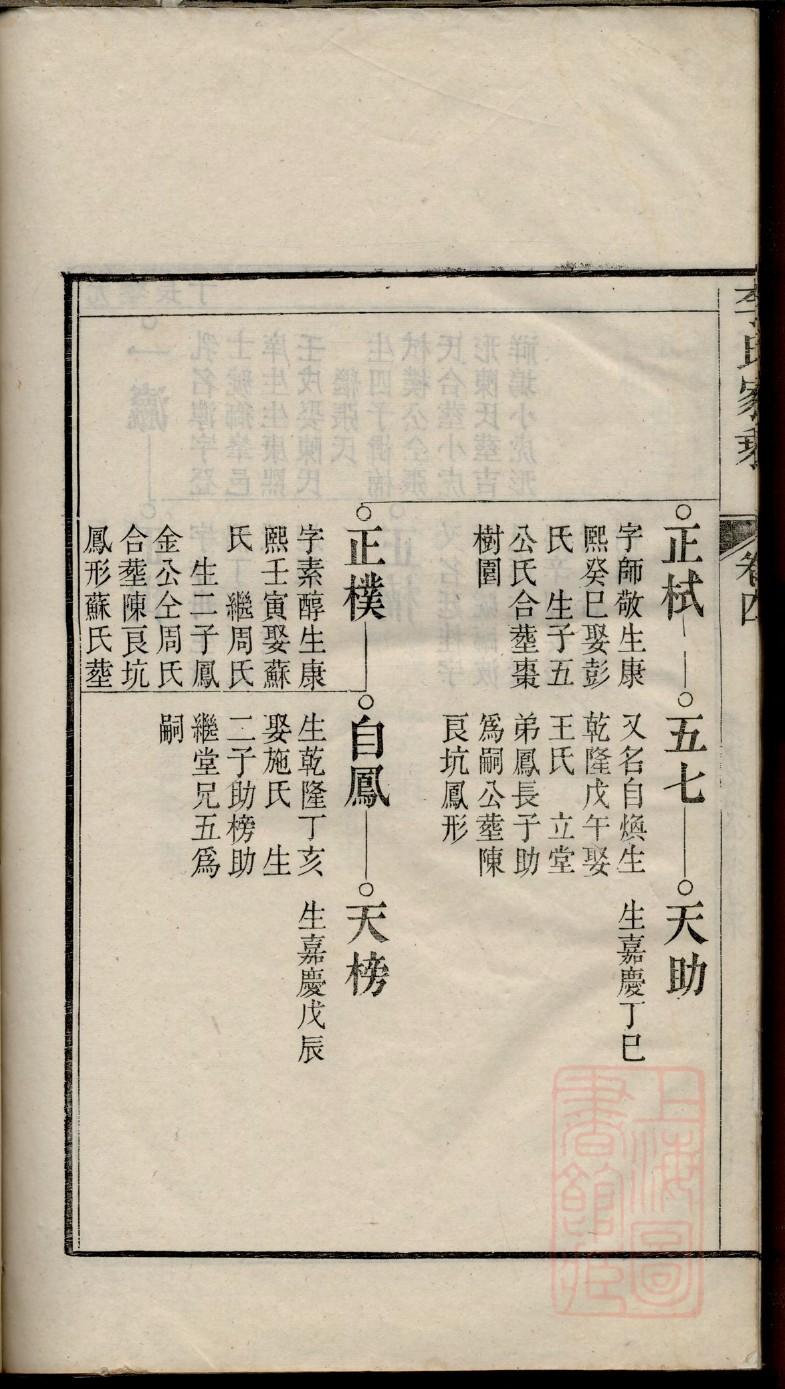 李氏家乘
卷四
正栻
字師敬生康
熙癸巳娶彭
氏　生子五
公氏合塟棗
樹園
五七
又名自煥生
乾隆戊午娶
王氏　立堂
弟鳳長子助
爲嗣公塟陳
艮坑鳳形
天助
生嘉慶丁巳
正樸
字素醇生康
熙壬寅娶蘇
氏　繼周氏
生二子鳳
金公仝周氏
合塟陳艮坑
鳳形蘇氏塟
自鳳
生乾隆丁亥
娶施氏　生
二子助榜助
繼堂兄五爲
嗣
天榜
生嘉慶戊辰
上海圖
書館藏